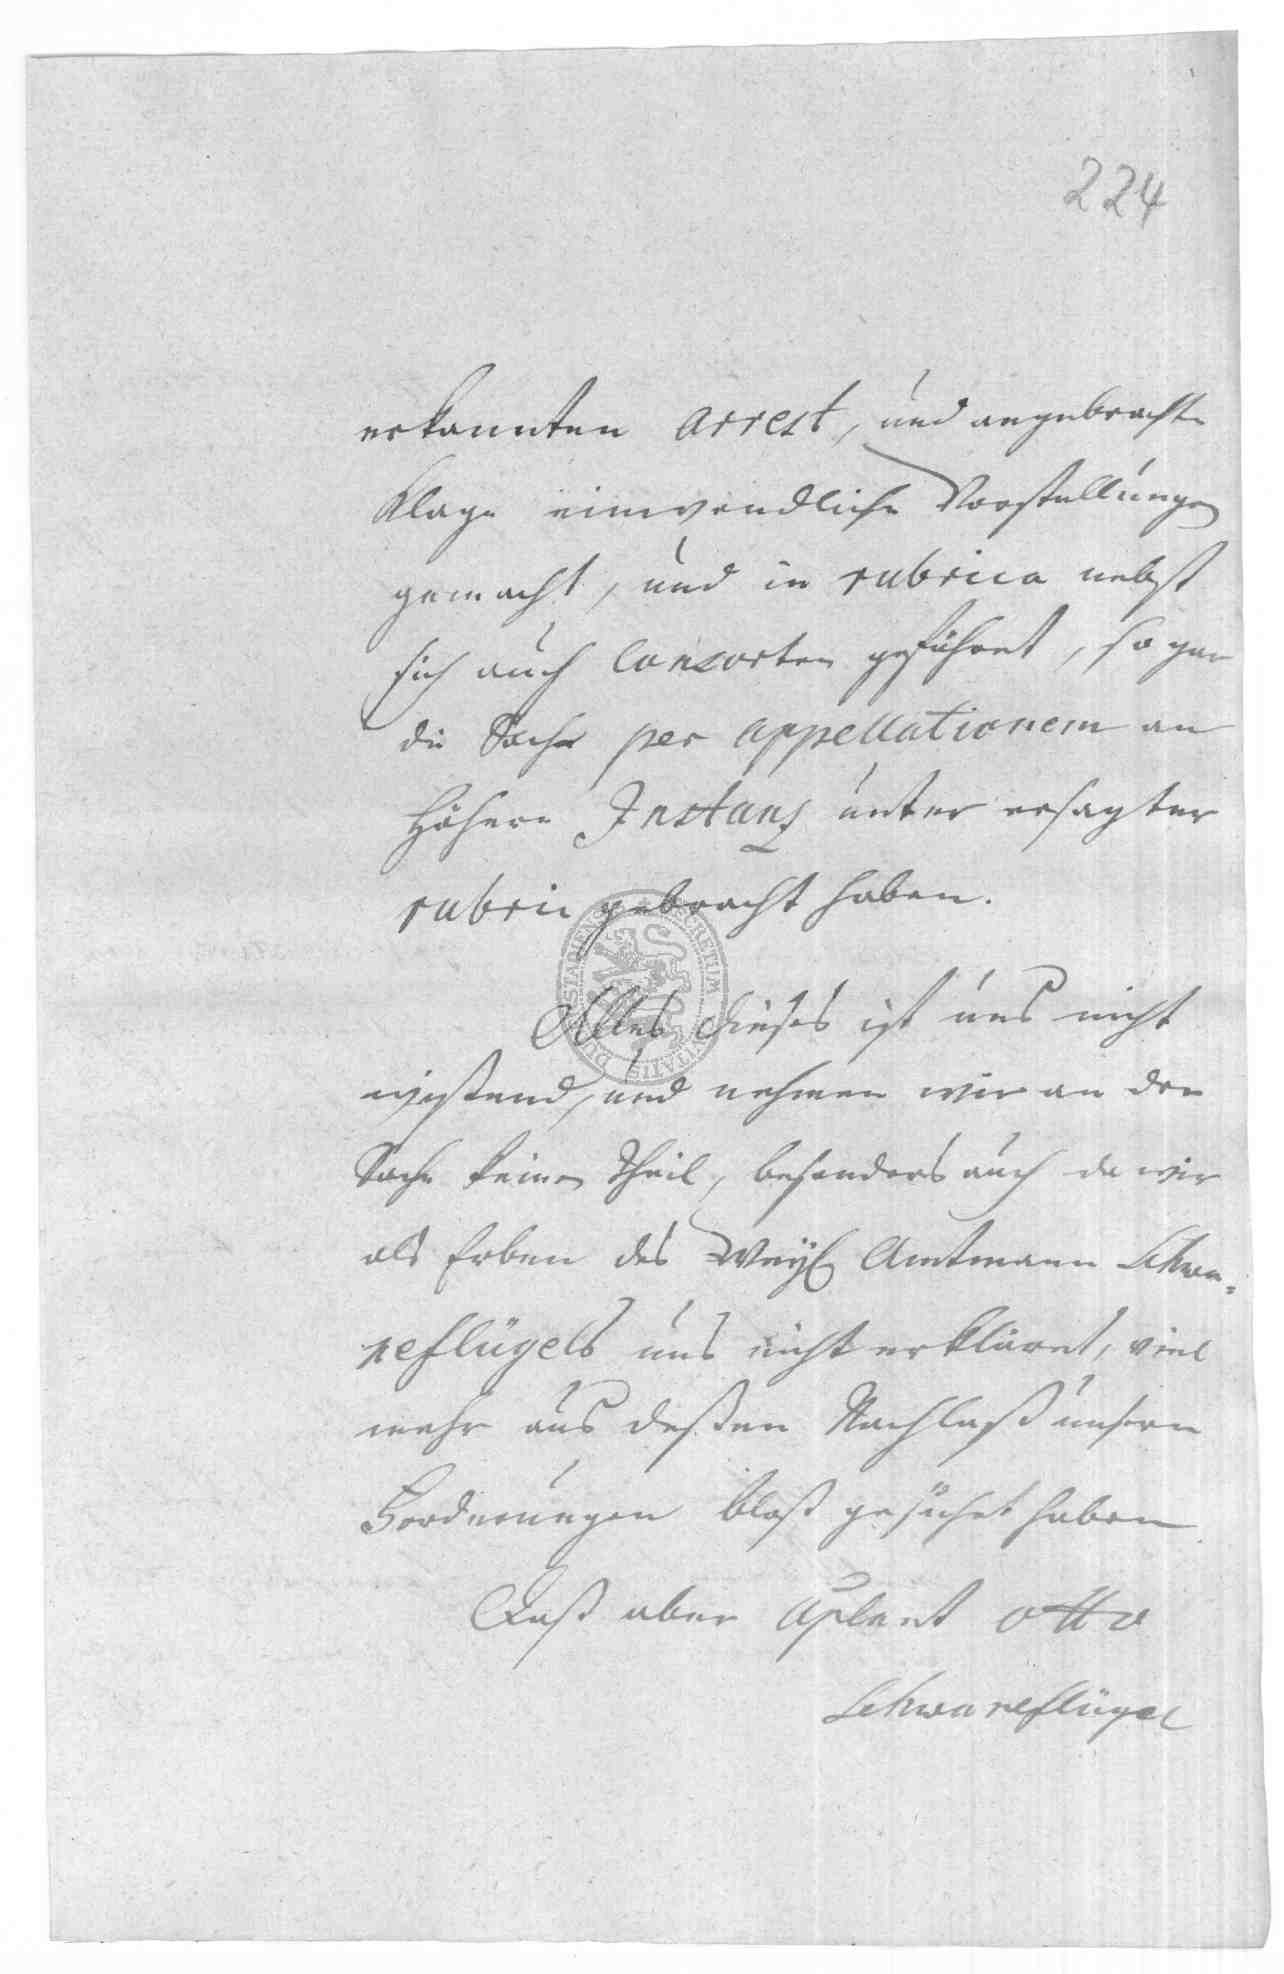 224
erkannten Arrest, und angebrachte
Klage einwendliche Vorstellungen
gemacht, und in rubrica nebst
sich auch Consorten geführet, so gar
die Sache per appellationem an
höhere Instanz unter ersagter
rubric gebracht haben.
Alles dieses ist uns nicht
wißend, und nehmen wir an der
Sache keinen Theil, besonders auch da wir
als Erben des Weyl Amtmann Schwa-
neflügels uns nicht erkläret, viel
mehr aus deßen Nachlaß unsere
Forderungen bloß gesuchet haben
Daß aber Aplant Otto
Schwaneflügel